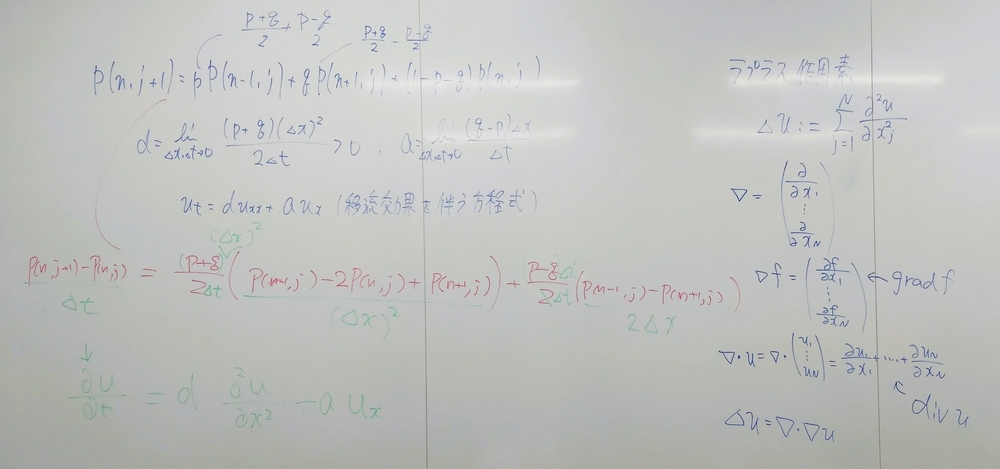 p+q/2 + p-q/2
p+q/2 - p-q/2
P(n, j+1) = p P(n-1, j) + q P(n+1, j) + (1-p-q) P(n, j)
d = lim Δx,Δt→0 (p+q)(Δx)² / 2Δt > 0 , a = lim Δx,Δt→0 (q-p)Δx / Δt
ut = d uxx + a ux (移流効果を伴う方程式)
(Δx)²
P(n, j+1) - P(n, j) / Δt = (p+q) / 2Δt ( P(n-1, j) - 2P(n, j) + P(n+1, j) ) / (Δx)² + p-q Δx / 2Δt (P(n-1, j) - P(n+1, j)) / 2Δx
↓
∂u/∂t = d ∂²u/∂x² - a ux
ラプラス作用素
Δu := Σ j=1 N ∂²u/∂x²j
∇ = ( ∂/∂x1 ⋮ ∂/∂xN )
∇f = ( ∂f/∂x1 ⋮ ∂f/∂xN ) ← grad f
∇·u = ∇·( u1 ⋮ uN ) = ∂u1/∂x1 + ···· + ∂uN/∂xN
↖ div u
Δu = ∇·∇u